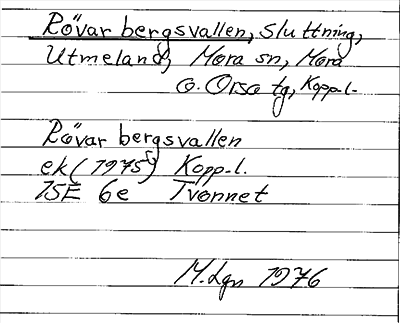 Rövarbergsvallen, sluttning,
Utmeland, Mora sn, Mora
o. Orsa tg, Kopp.l.
Rövarbergsvallen
ek (1975) Kopp.l.
15E 6e Tvonnet
M. Lgn 1976